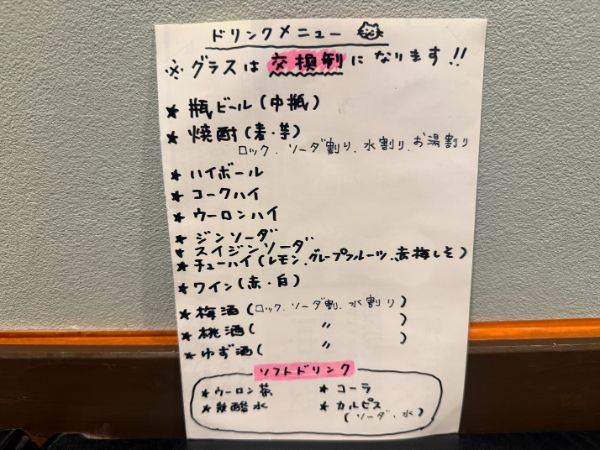 ドリンクメニュー
※グラスは交換制になります!!
★ 瓶ビール(中瓶)
★ 焼酎(麦・芋)
ロック、ソーダ割り、水割り、お湯割り
★ ハイボール
★ コークハイ
★ ウーロンハイ
★ ジンソーダ
★ スイジンソーダ
★ チューハイ(レモン、グレープフルーツ、赤梅しそ)
★ ワイン(赤・白)
★ 梅酒(ロック、ソーダ割、水割り)
★ 桃酒( 〃 )
★ ゆず酒( 〃 )
ソフトドリンク
★ ウーロン茶 ★ コーラ
★ 炭酸水 ★ カルピス
(ソーダ、水)